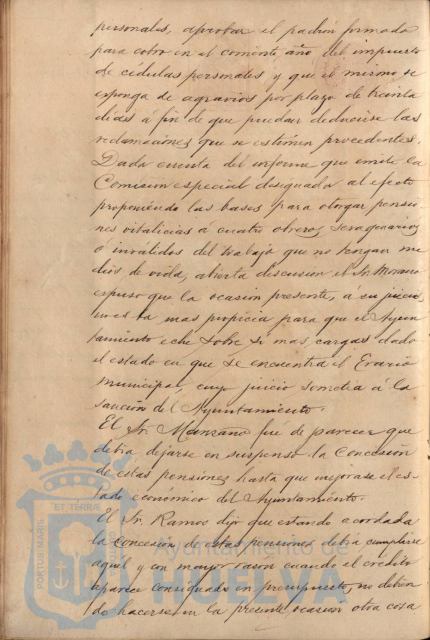 personales, aprobar el padrón formado
para cobro en el corriente año del impuesto
de cédulas personales y que el mismo se
esponga de agravios por plazo de treinta
dias á fin de que puedan deducirse las
reclamaciones que se estimen procedentes.
Dada cuenta del informe que emite la
Comision especial designada al efecto
proponiendo las bases para otorgar pensio-
nes vitalicias á cuatro obreros sexagenarios
ó inválidos del trabajo que no tengan me
dios de vida, abierta discusion el Sr. Moreno
espuso que la ocasion presente, á su juicio
no es la mas propicia para que el Ayun
tamiento eche sobre si mas cargas dado
el estado en que se encuentra el Erario
municipal, cuyo juicio sometia á la
sancion del Ayuntamiento.
El Sr. Manzano fué de parecer que
debia dejarse en suspenso la concesion
de estas pensiones hasta que mejorase el es-
tado económico del Ayuntamiento.
El Sr. Ramos dijo que estando acordada
la concesion de estas pensiones debia cumplirse
aquel y con mayor razon cuando el credito
aparece consignado en presupuesto, no debien
do hacerse en la presente ocasion otra cosa
PORTUS MARIS ET TERRAE
Ayuntamiento de
HUELVA